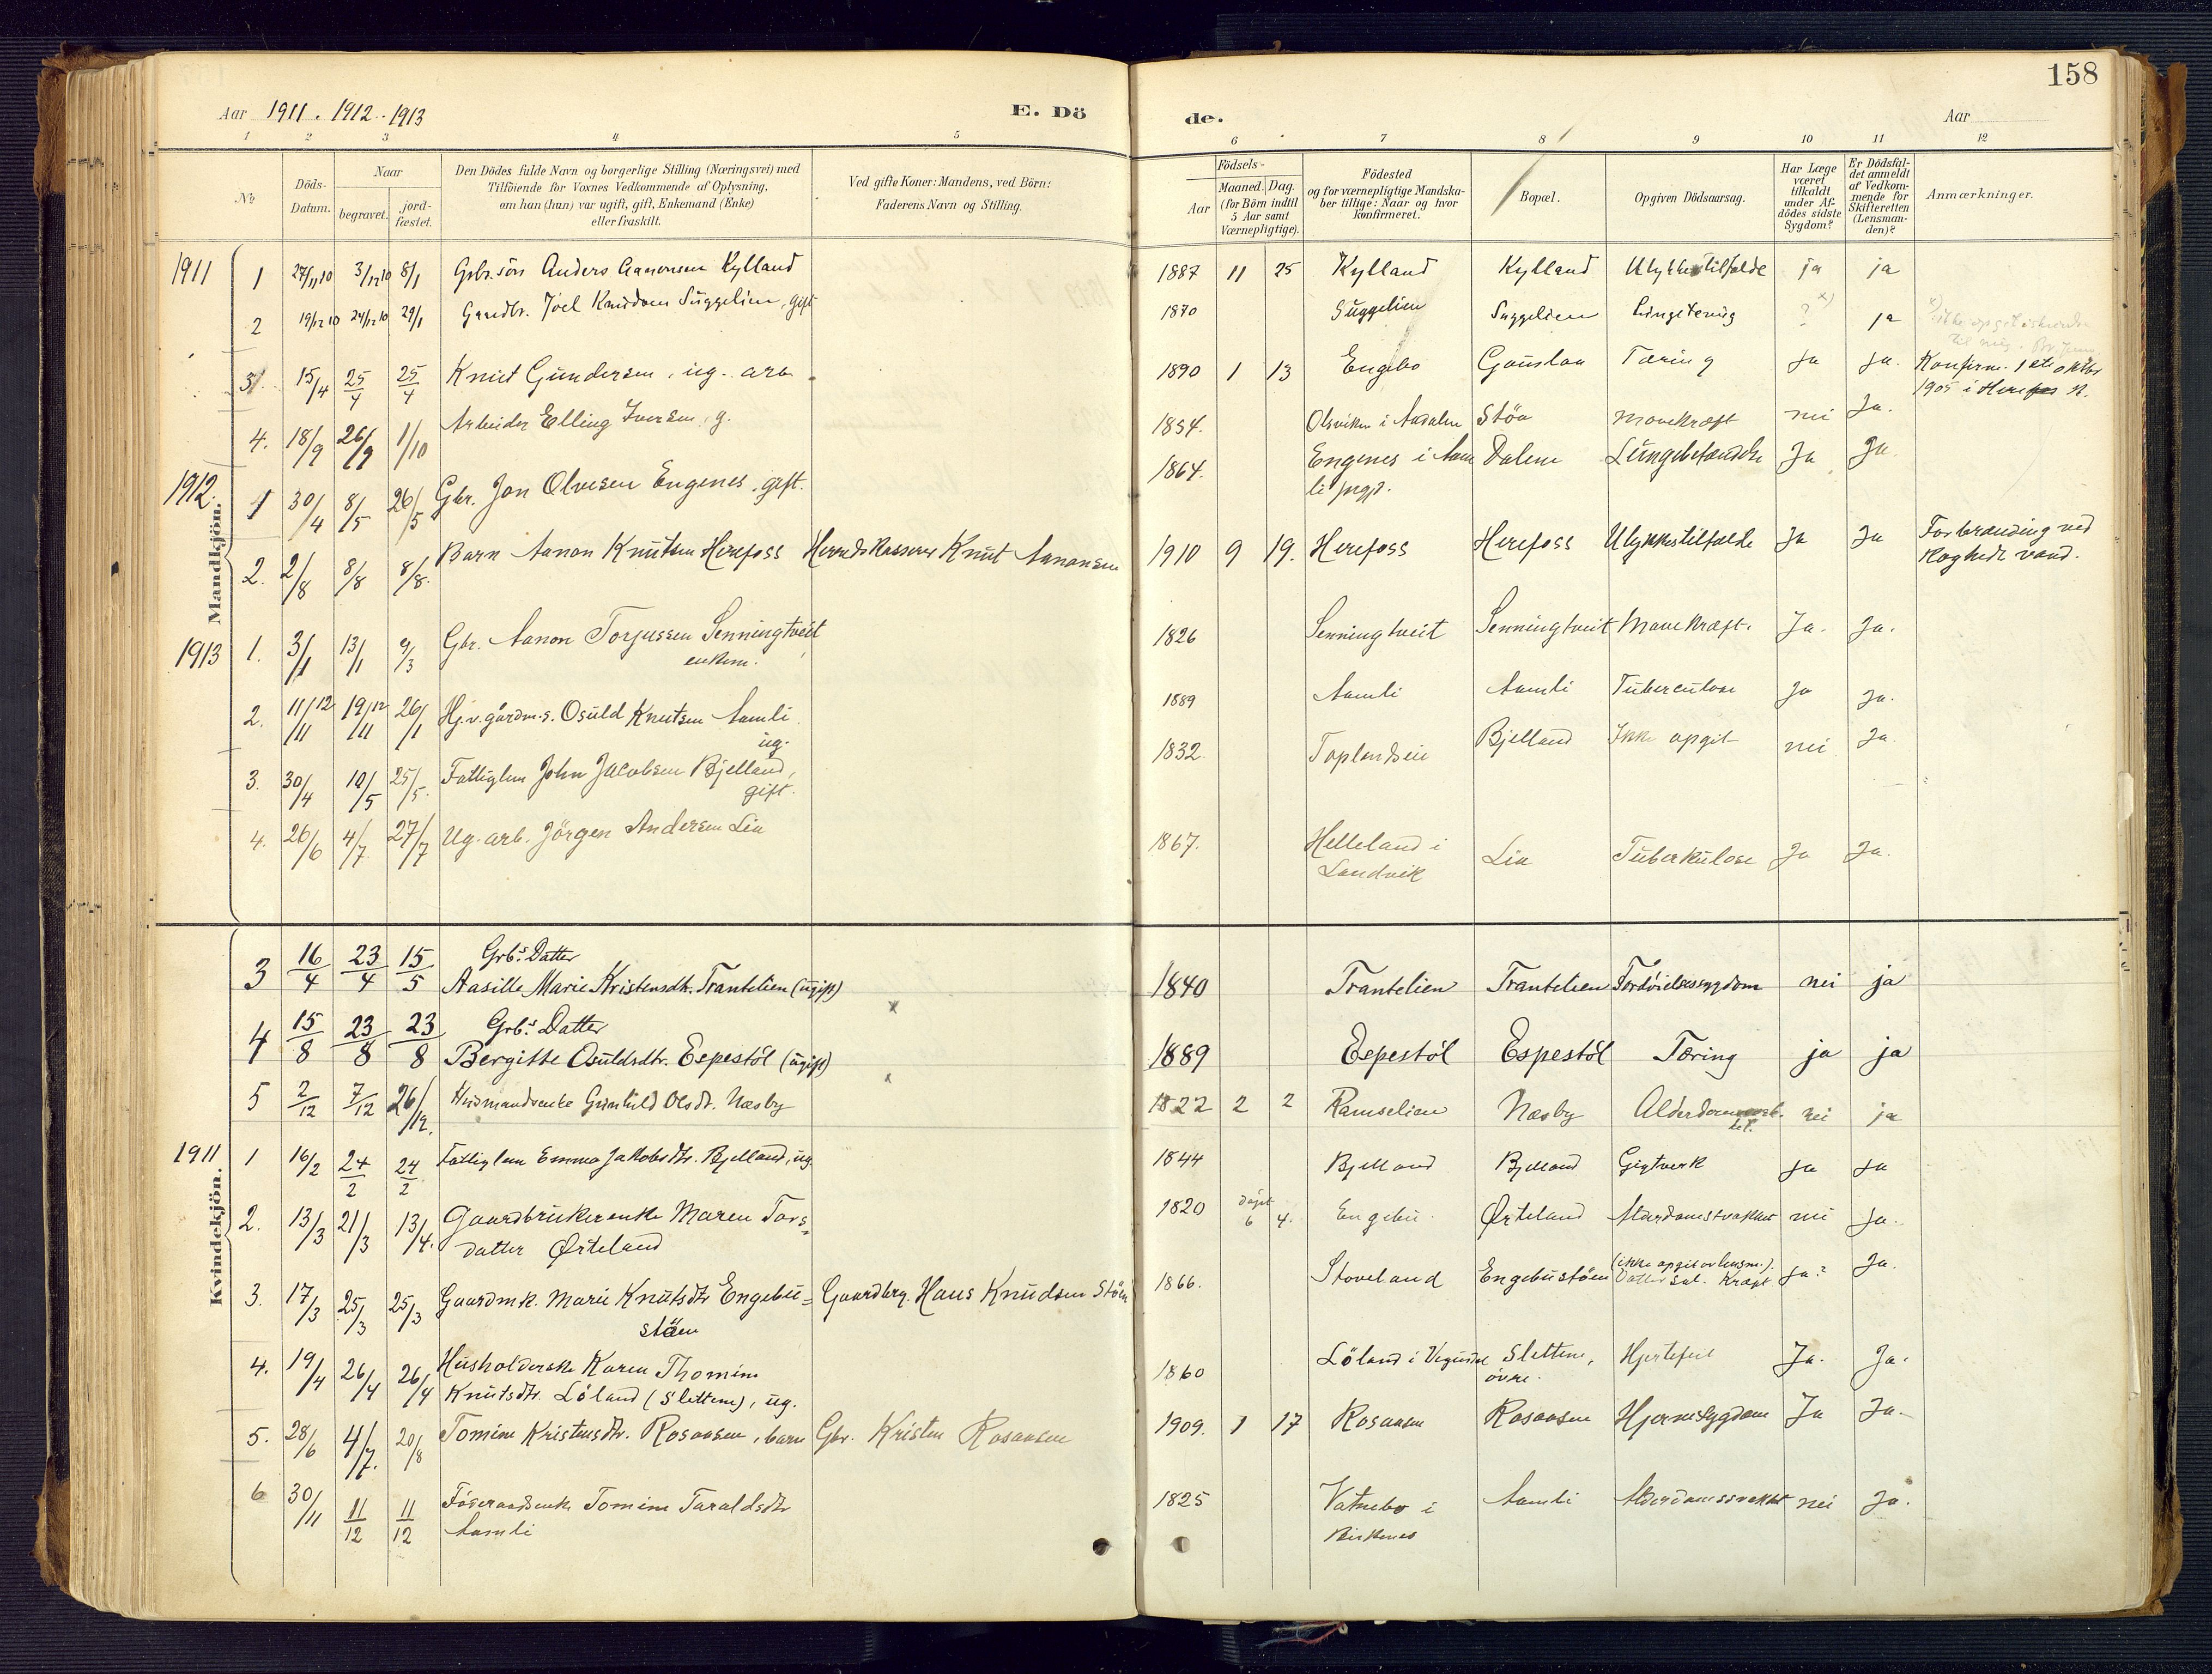 158
Aar 1911. 1912. 1913
E. Dö
de.
Aar
1 2 3 4 5 6 7 8 9 10 11 12
№
Döds-Datum.
Naar
begravet.
jord-fæstet.
Den Dödes fulde Navn og borgerlige Stilling (Næringsvei) med
Tilföiende for Voxnes Vedkommende af Oplysning,
om han (hun) var ugift, gift, Enkemand (Enke)
eller fraskilt.
Ved gifte Koner: Mandens, ved Börn:
Faderens Navn og Stilling.
Födsels-
Aar
Maaned. Dag.
(for Börn indtil
5 Aar samt
Værnepligtige).
Födested
og for værnepligtige Mandska-
ber tillige: Naar og hvor
konfirmeret.
Bopæl.
Opgiven Dödsaarsag.
Har Læge
været
tilkaldt
under Af-
dödes sidste
Sygdom?
Er Dödsfal-
det anmeldt
af Vedkom-
mende for
Skifteretten
(Lensman-
den)?
Anmærkninger.
Mandkjön.
1911 1 27/11 10 3/12 10 8/1 Gbr. sön Anders Aanonsen Kylland 1887 11 25 Kylland Kylland Ulykkestilfælde ja ja
2 19/12 10 24/12 10 29/1 Gaardbr. Joel Knudsen Suggelien, gift 1870 Suggelien Suggelien Lungetæring ? x) ja
3 15/4 25/4 25/4 Knut Gundersen, ug. arb. 1890 1 13 Engebo Gauslaa Tæring Ja ja. Konfirm. 1ste oktbr
1905 i Herefos k.
4. 18/9 26/9 1/10 Arbeider Elling Iversen, g. 1854. Olsviken i Aadalen Støa Mavekræft nei Ja.
1912. 1 30/4 8/5 26/5 Gbr. Jon Olvesen Engenes, gift. 1864. Engenes i Aam
li prgj. Dalene Lungebetændelse Ja Ja.
2. 2/8 8/8 8/8. Barn Aanon Knutsen Herefoss Herredskasserer Knut Aanonsen 1910 9 19. Herefoss Herefoss Ulykkestilfælde Ja Ja Forbrænding ved
koghedt vand.
1913 1. 3/1 13/1 9/3 Gbr. Aanon Torjussen Senningtveit,
enkem. 1826 Senningtveit Senningtveit Mavekræft. Ja. Ja.
2. 11/11 12 19/11 12 26/1 Hj.v. gårdm.s. Osuld Knutsen Aamli
ug. 1889 Aamli Aamli Tuberculose Ja Ja.
3. 30/4 10/5 25/5. Fattiglem John Jacobsen Bjelland,
gift. 1832. Toplandseie Bjelland Ikke opgit nei Ja
4. 26/6 4/7 27/7 Ug. arb. Jörgen Andersen Lia 1867. Helleland i
Landvik Lia Tuberkulose Ja Ja.
Kvindekjön.
3 16/4 23/4 15/5 Grbs. Datter
Aasille Marie Kristensdtr. Trantelien (ugift) 1840 Trantelien Trantelien Fordöielsessygdom nei ja
4 15/8 23/8 23/8 Grbs. Datter
Bergitte Osuldsdtr. Espestöl (ugift) 1889 Espestöl Espestöl Tæring ja ja
5 2/12 7/12 26/12. Husmandsenke Gunhild Olsdtr. Næsby 1822 2 2 Ramselien Næsby nei ja
1911 1 16/2 24/2 24/2 Fattiglem Emma Jakobsdtr. Bjelland, ug. 1844 Bjelland Bjelland Gigtverk Ja Ja
2. 13/3 21/3 13/4. Gaardbrukerenke Maren Tors=
datter Ørteland 1820 døpt
6 4. Engebu Ørteland Alderdomssvakhet nei Ja.
3. 17/3 25/3 25/3 Gaardmk. Marie Knutsdtr Engebu=
støen Gaardbrg. Hans Knudsen Støen 1866. Stoveland Engebustøen (ikke opgit av lensm.).
Kræft ja? Ja.
4. 19/4 26/4 26/4 Husholderske Karen Thomine
Knutsdtr. Löland (Slettene), ug. 1860 Löland i Vegusdal Slettene,
övre. Hjertefeil Ja. Ja.
5. 28/6 4/7. 20/8 Tomine Kristensdtr. Rosaasen, barn Gbr. Kristen Rosaasen 1909. 1 17 Rosaasen Rosaasen Hjernesygdom Ja Ja.
6 30/11 11/12 11/12 Føderaadsenke Tomine Taraldsdtr
Aamli 1825 Vatnebo i
Birkenes Aamli Alderdomssvakhet nei Ja.